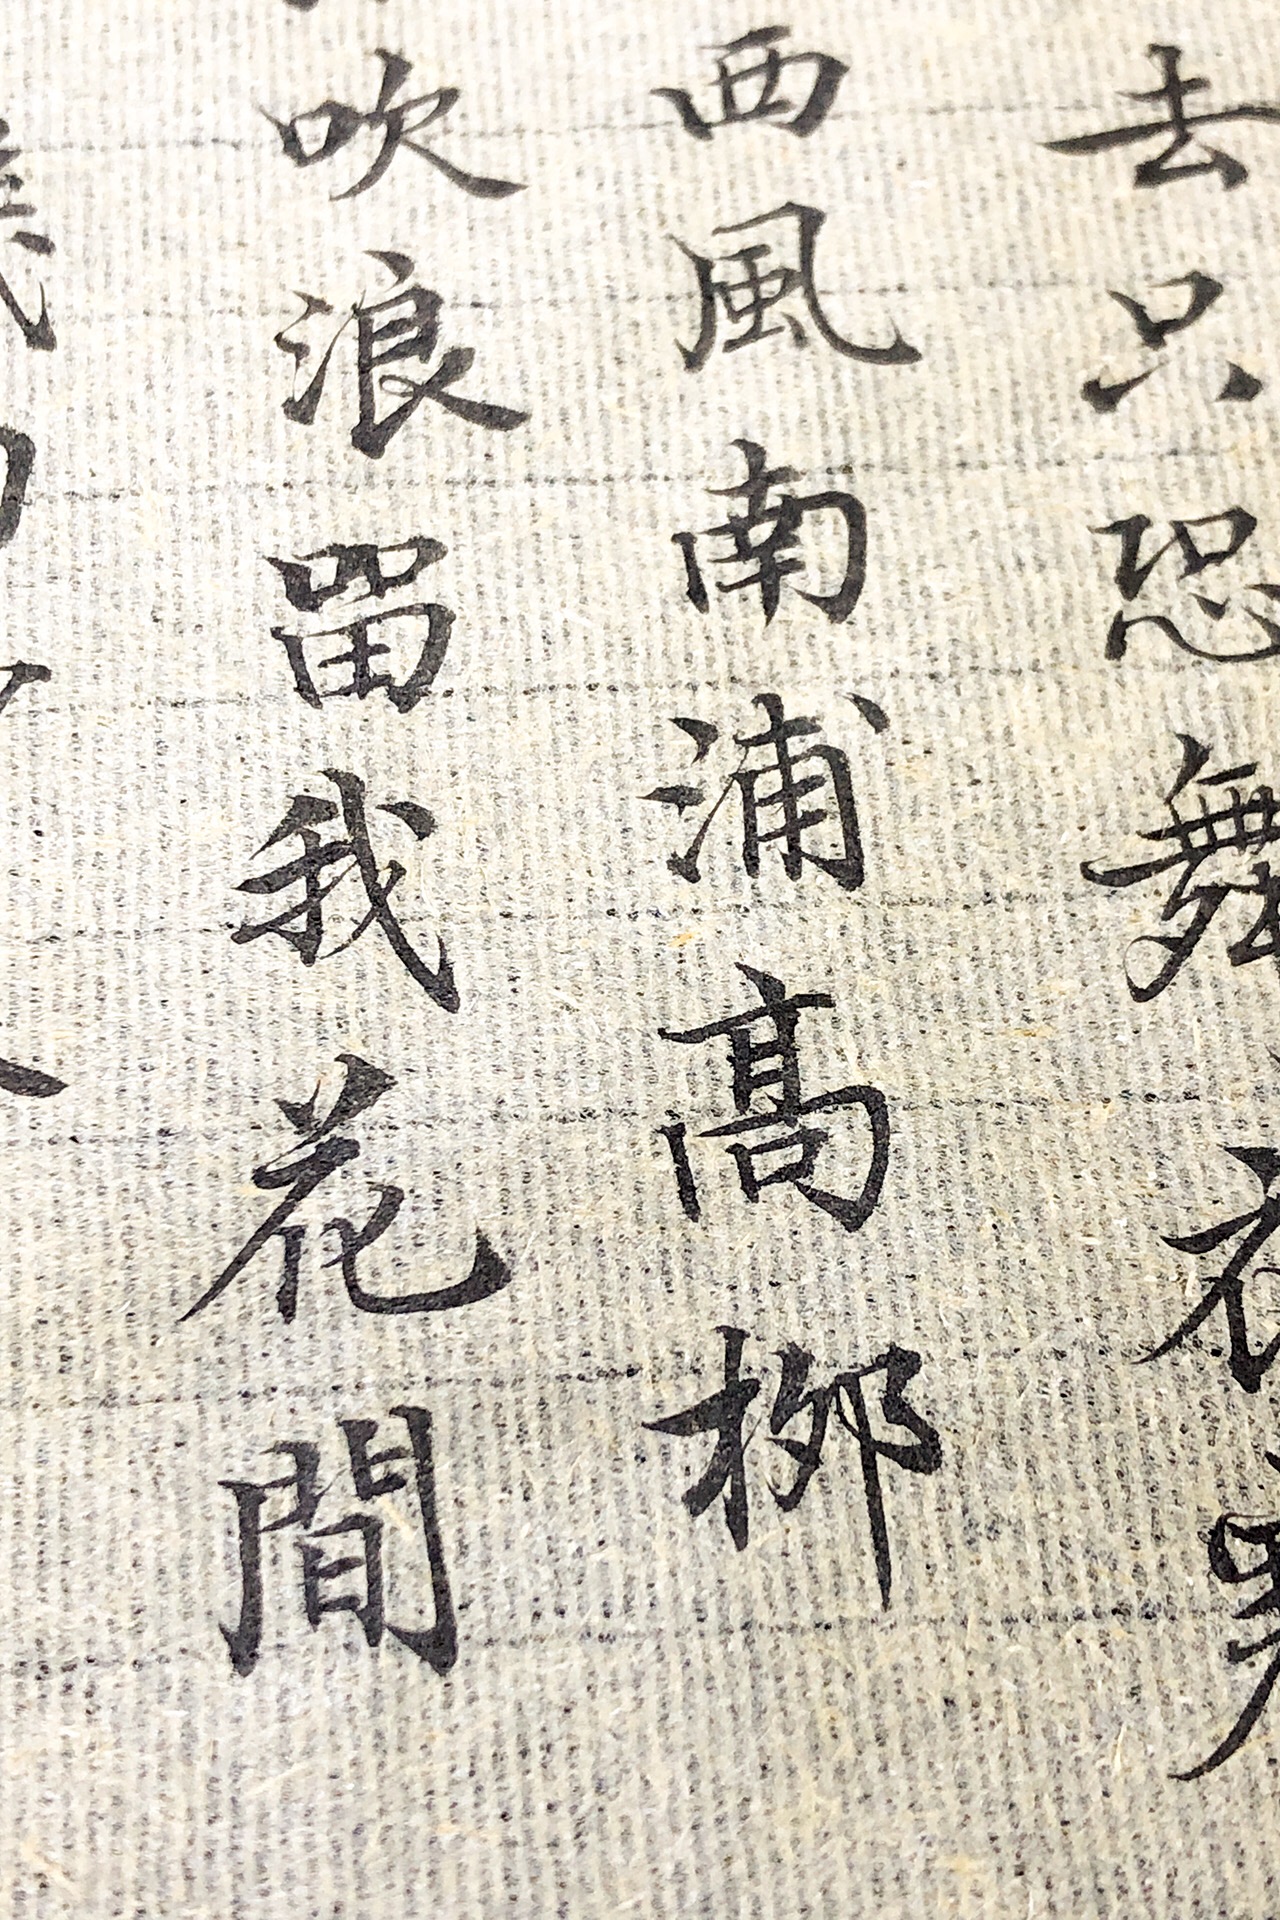 去只恐舞衣寒
西風南浦高栁
吹浪留我花間